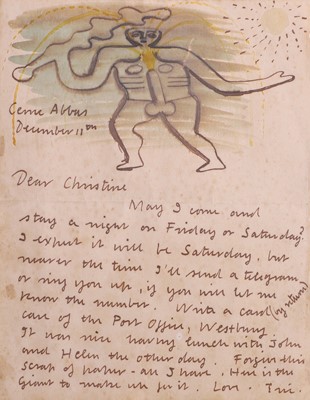 Cerne Abbas
December 11th
Dear Christine
May I come and
stay a night on Friday or Saturday?
I expect it will be Saturday, but
nearer the time I'll send a telegram
or ring you up, if you will let me
know the number. Write a card (by return)
care of the Post Office, Westbury.
It was nice having lunch with John
and Helen the other day. Forgive this
scrap of paper - all I have. Here is the
Giant to make up for it. Love.